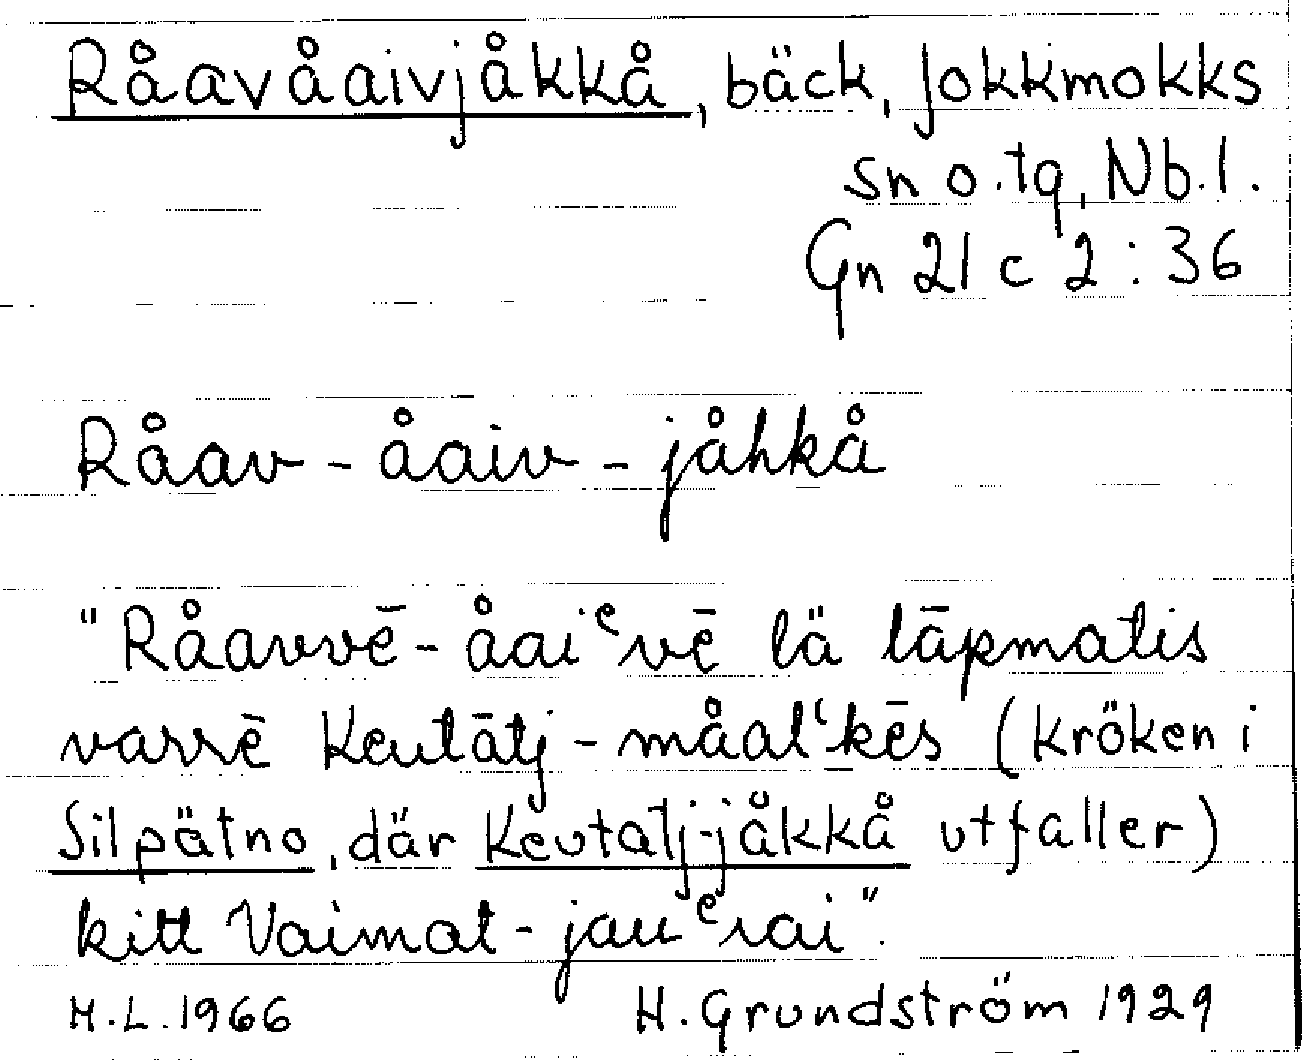 Råavåaivjåkkå, bäck, Jokkmokks
sn o. tg, Nb. l.
Gn 21 c 2 : 36
Råav - åaiv - jåhkå
"Råavvē - åaiᵉvē lä lāpmatis
varrē Keutātj - måalʻkēs (kröken i
Silpätno, där Keutatj-jåkkå utfaller)
kitt Vaimat - jauᵉrai".
H.L. 1966 H. Grundström 1929